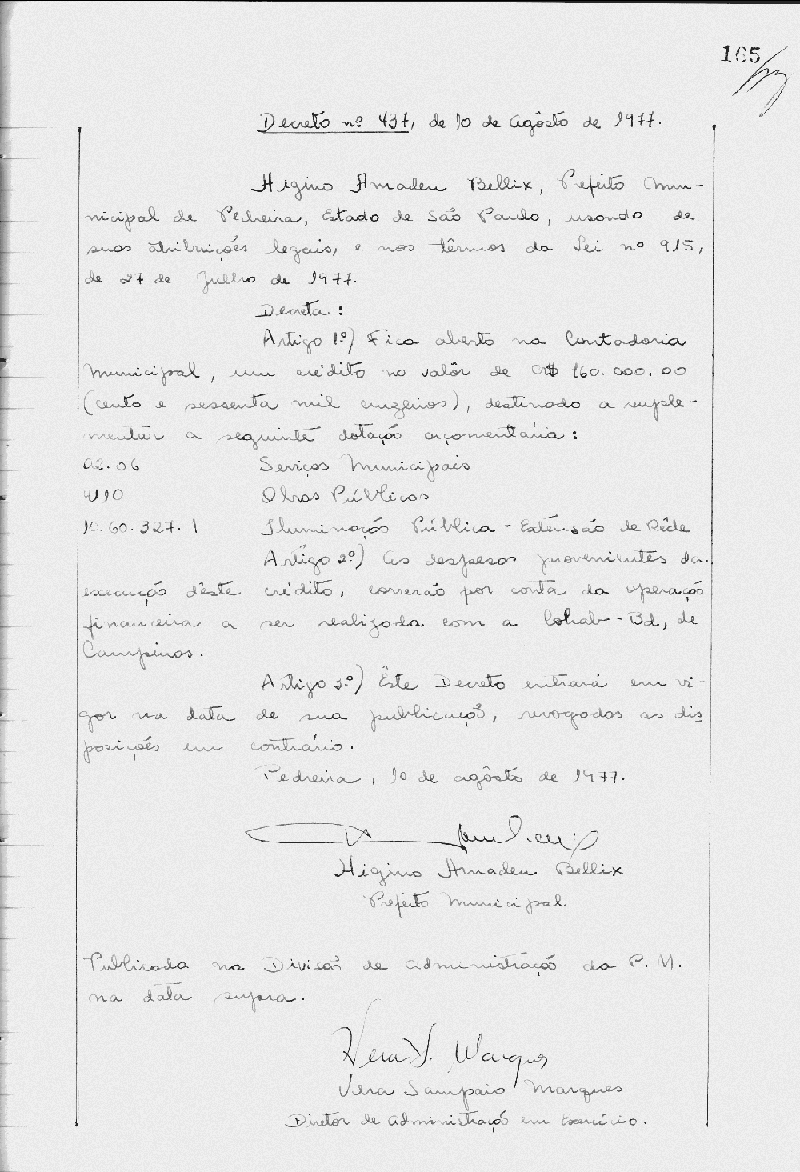 165
Decreto nº 437, de 10 de Agôsto de 1977.
Higino Amadeu Bellix, Prefeito Mun-
nicipal de Pedreira, Estado de São Paulo, usando de
suas atribuições legais, e nos têrmos da Lei nº 915,
de 27 de Julho de 1977.
Decreta:
Artigo 1º) Fica aberto na Contadoria
Municipal, um crédito no valôr de CR$ 160.000.00
(cento e sessenta mil cruzeiros), destinado a suple-
mentar a seguinte dotação orçamentária:
02.06 Serviços Municipais
4110 Obras Públicas
10.60.327.1 Iluminação Pública - Extensão de Rêde
Artigo 2º) As despesas provenientes da
execução dêste crédito, correrão por conta da operação
financeira a ser realizada com a Cohab-Bd, de
Campinas.
Artigo 3º) Êste Decreto entrará em vi-
gor na data de sua publicação, revogadas as dis
posições em contrário.
Pedreira, 10 de agôsto de 1977.
Higino Amadeu Bellix
Prefeito Municipal.
Publicada na Divisão de Administração da P. M.
na data supra.
Vera S. Marques
Vera Sampaio Marques
Diretor de Administração em Exercício.